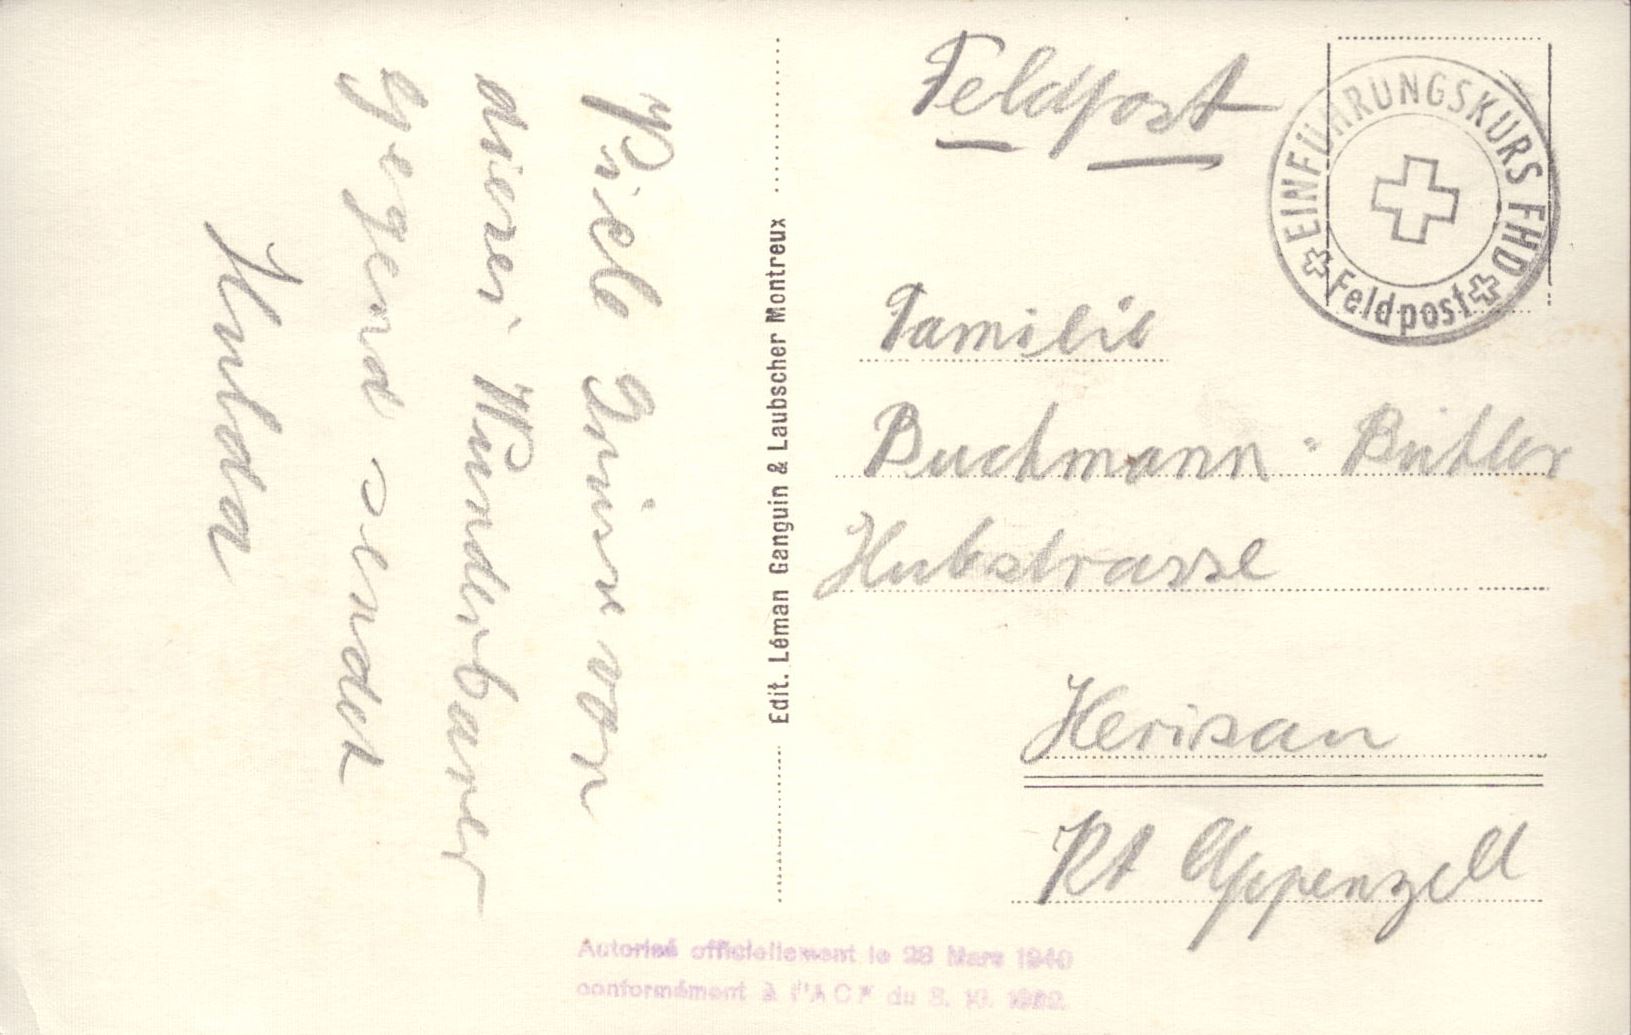 Viele Grüsse von
dieser Wunderbaren
Gegend sendet
Hulda
Edit. Léman Ganguin & Laubscher Montreux
Feldpost
EINFÜHRUNGSKURS FHD
Feldpost
Familie
Buchmann-Bühler
Hubstrasse
Herisau
Kt Appenzell
Autorisé officiellement le 28 Mars 1940
conformément à l'ACF du